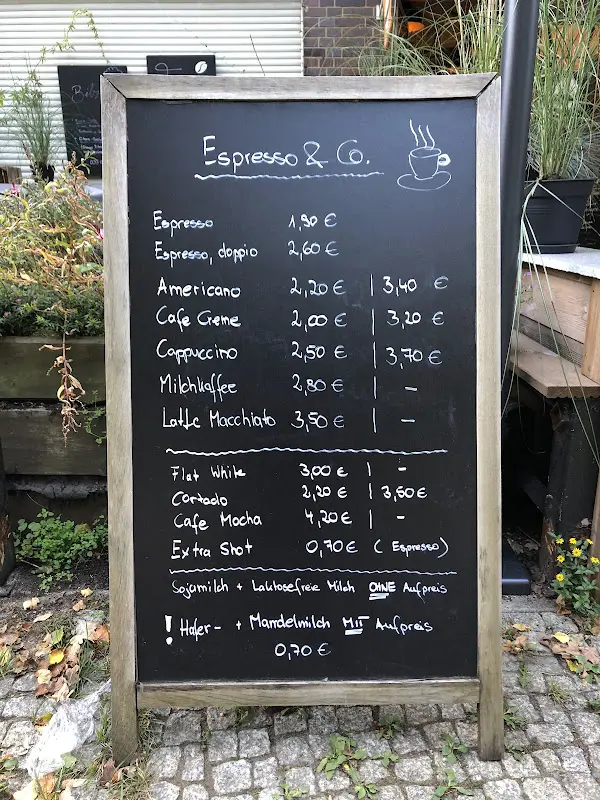 Espresso & Co.
Espresso 1,90 €
Espresso, doppio 2,60 €
Americano 2,20 € | 3,40 €
Cafe Creme 2,00 € | 3,20 €
Cappuccino 2,50 € | 3,70 €
Milchkaffee 2,80 € | -
Latte Macchiato 3,50 € | -
Flat White 3,00 € | -
Cortado 2,20 € | 3,60 €
Cafe Mocha 4,20 € | -
Extra Shot 0,70 € (Espresso)
Sojamilch + Laktosefreie Milch OHNE Aufpreis
! Hafer- + Mandelmilch MIT Aufpreis
0,70 €